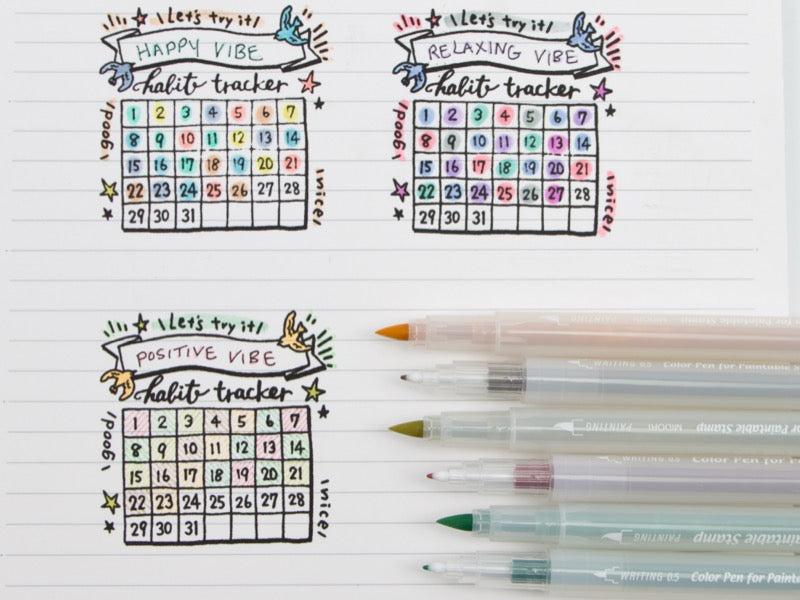 Let's try it!
HAPPY VIBE
habit tracker
good!
nice!
1 2 3 4 5 6 7
8 9 10 11 12 13 14
15 16 17 18 19 20 21
22 23 24 25 26 27 28
29 30 31
Let's try it!
RELAXING VIBE
habit tracker
good!
nice!
1 2 3 4 5 6 7
8 9 10 11 12 13 14
15 16 17 18 19 20 21
22 23 24 25 26 27 28
29 30 31
Let's try it!
POSITIVE VIBE
habit tracker
good!
nice!
1 2 3 4 5 6 7
8 9 10 11 12 13 14
15 16 17 18 19 20 21
22 23 24 25 26 27 28
29 30 31
PAINTING MIDORI for Paintable Stamp
WRITING 0.5 Color Pen for Paintable
PAINTING MIDORI Paintable Stamp
WRITING 0.5 Color Pen for
PAINTING Paintable Stamp
WRITING 0.5 Color Pen for